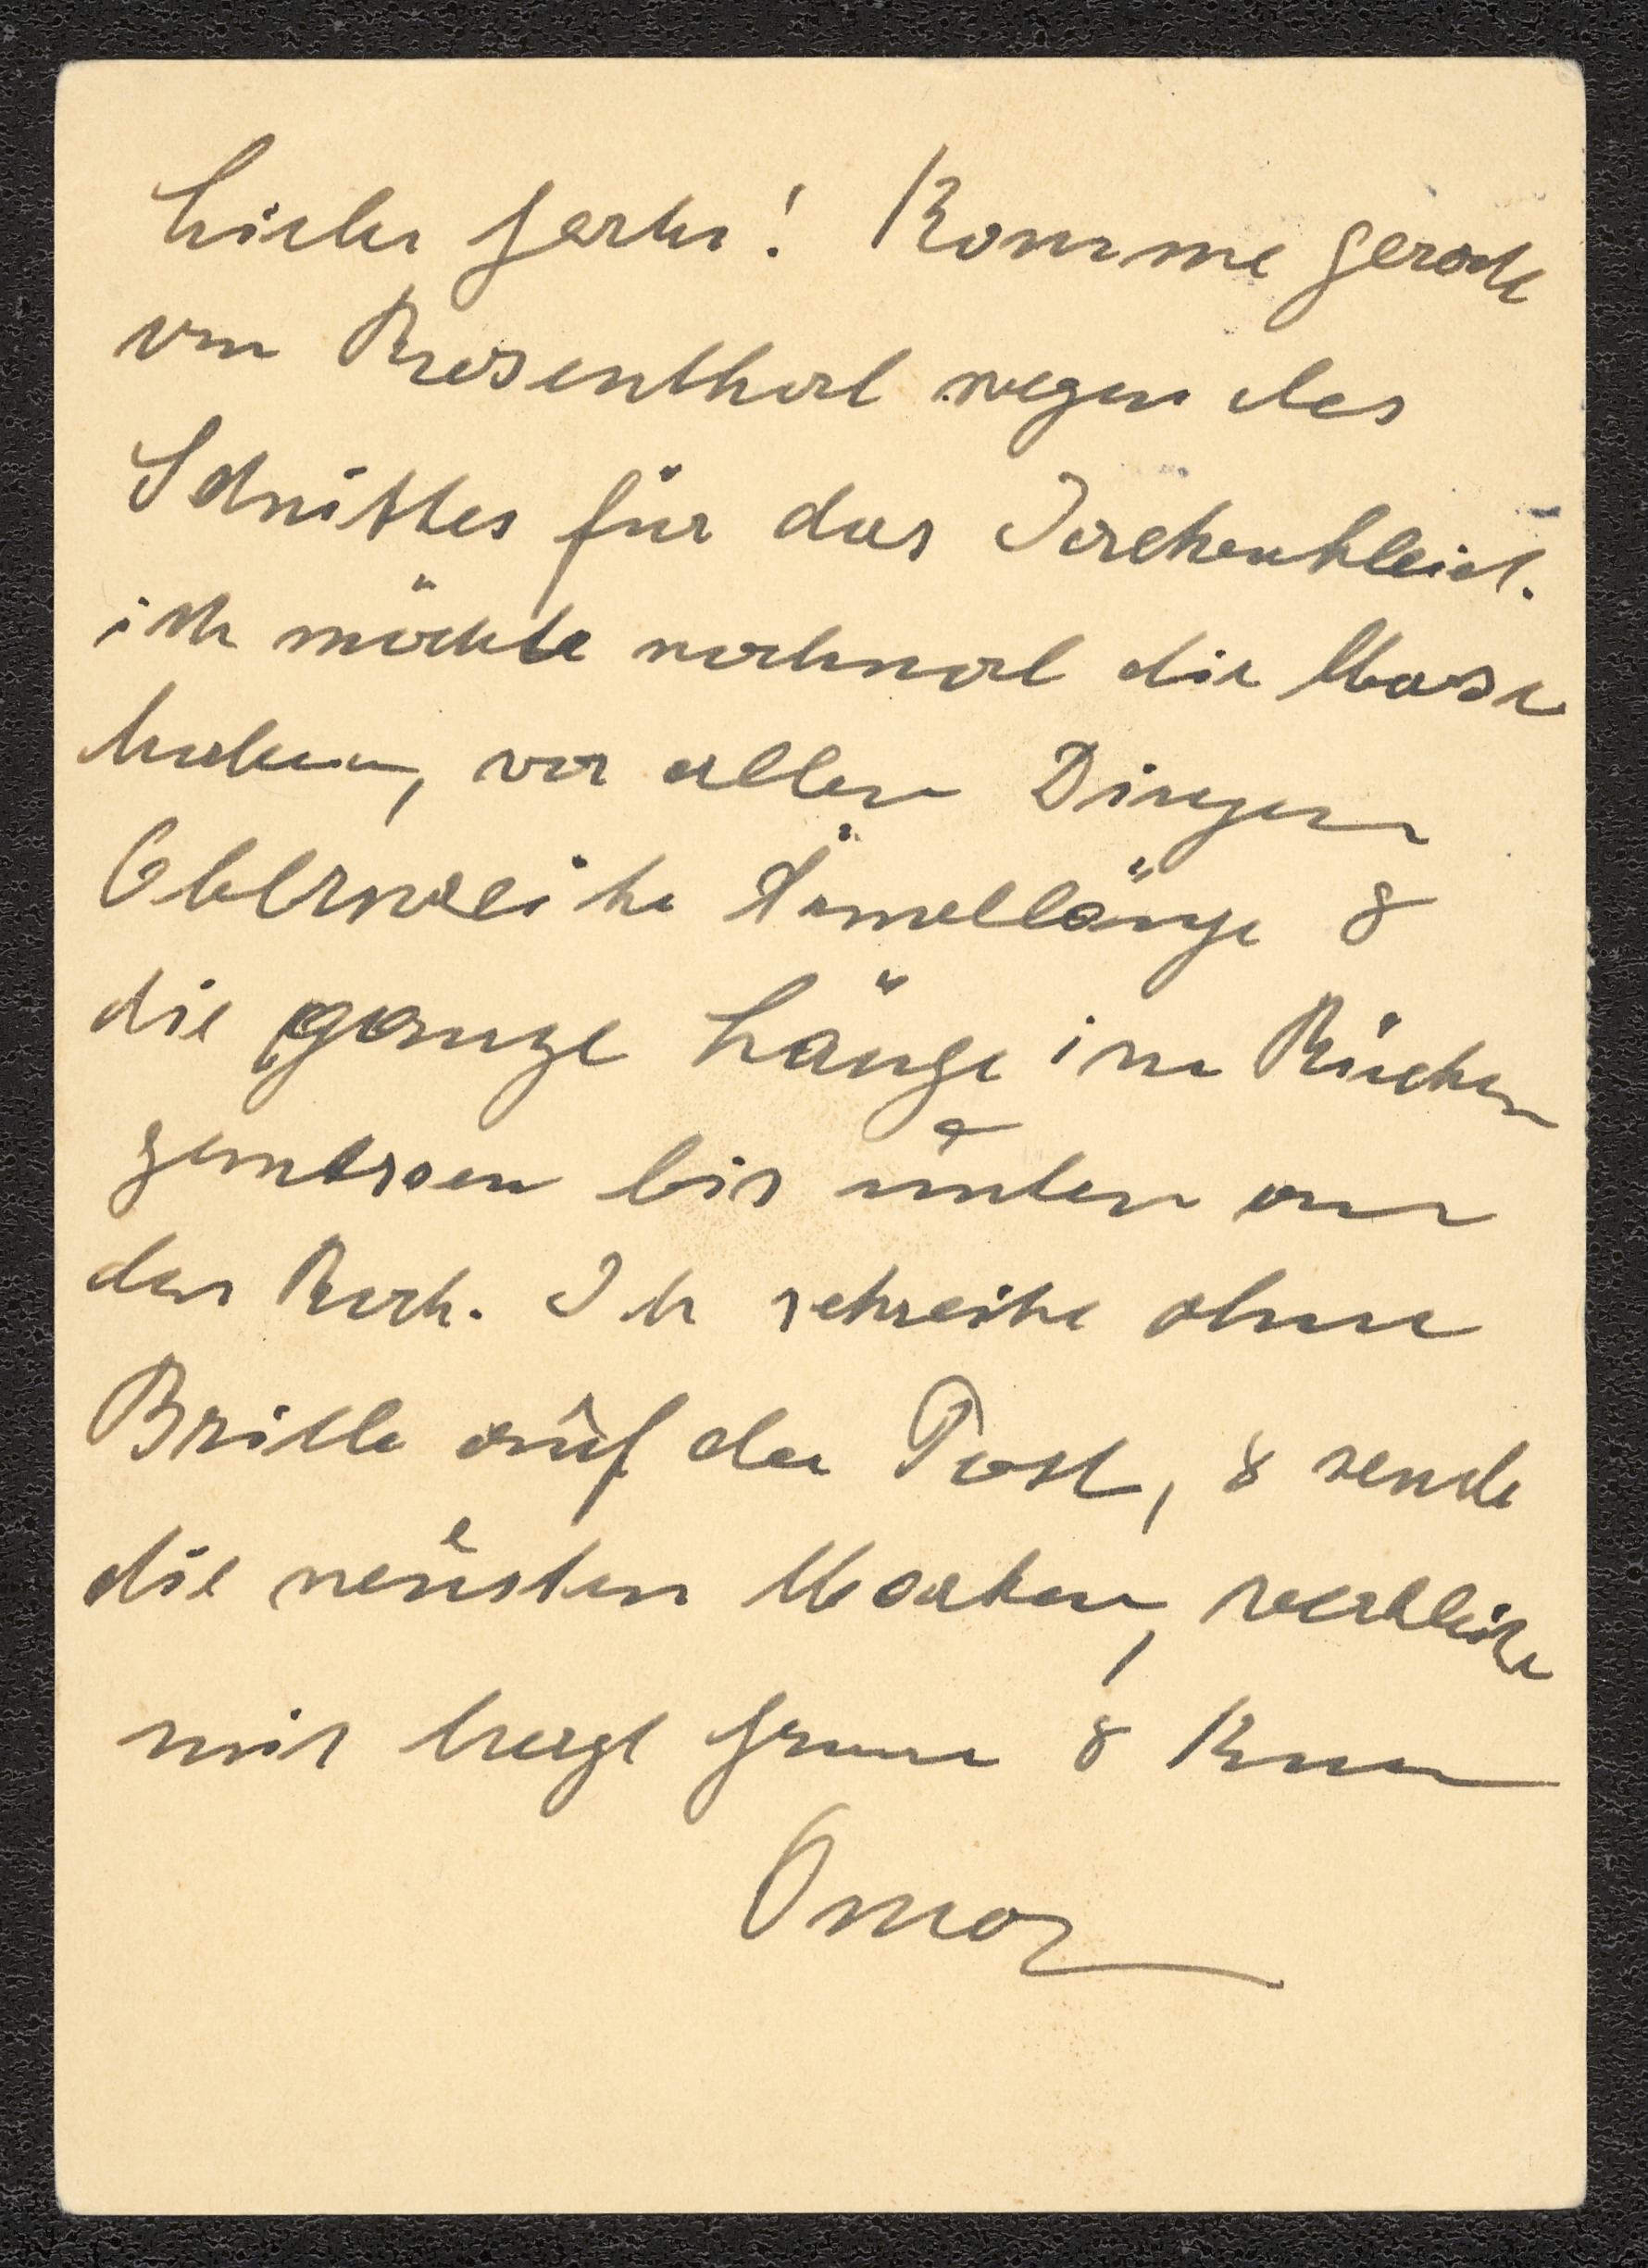 Liebe Gerta! Komme gerade
von Rosenthal wegen des
Schnittes für das Jackenkleid.
ich möchte nochmal die Mase
haben, vor allen Dingen
Oberweite Ärmellänge &
die ganze Länge im Rücken
gemessen bis unten an
den Rock. Ich schreibe ohne
Brille auf der Post, & sende
die neusten Marken, verbleibe
mit herzl Grusse & Kuss
Oma